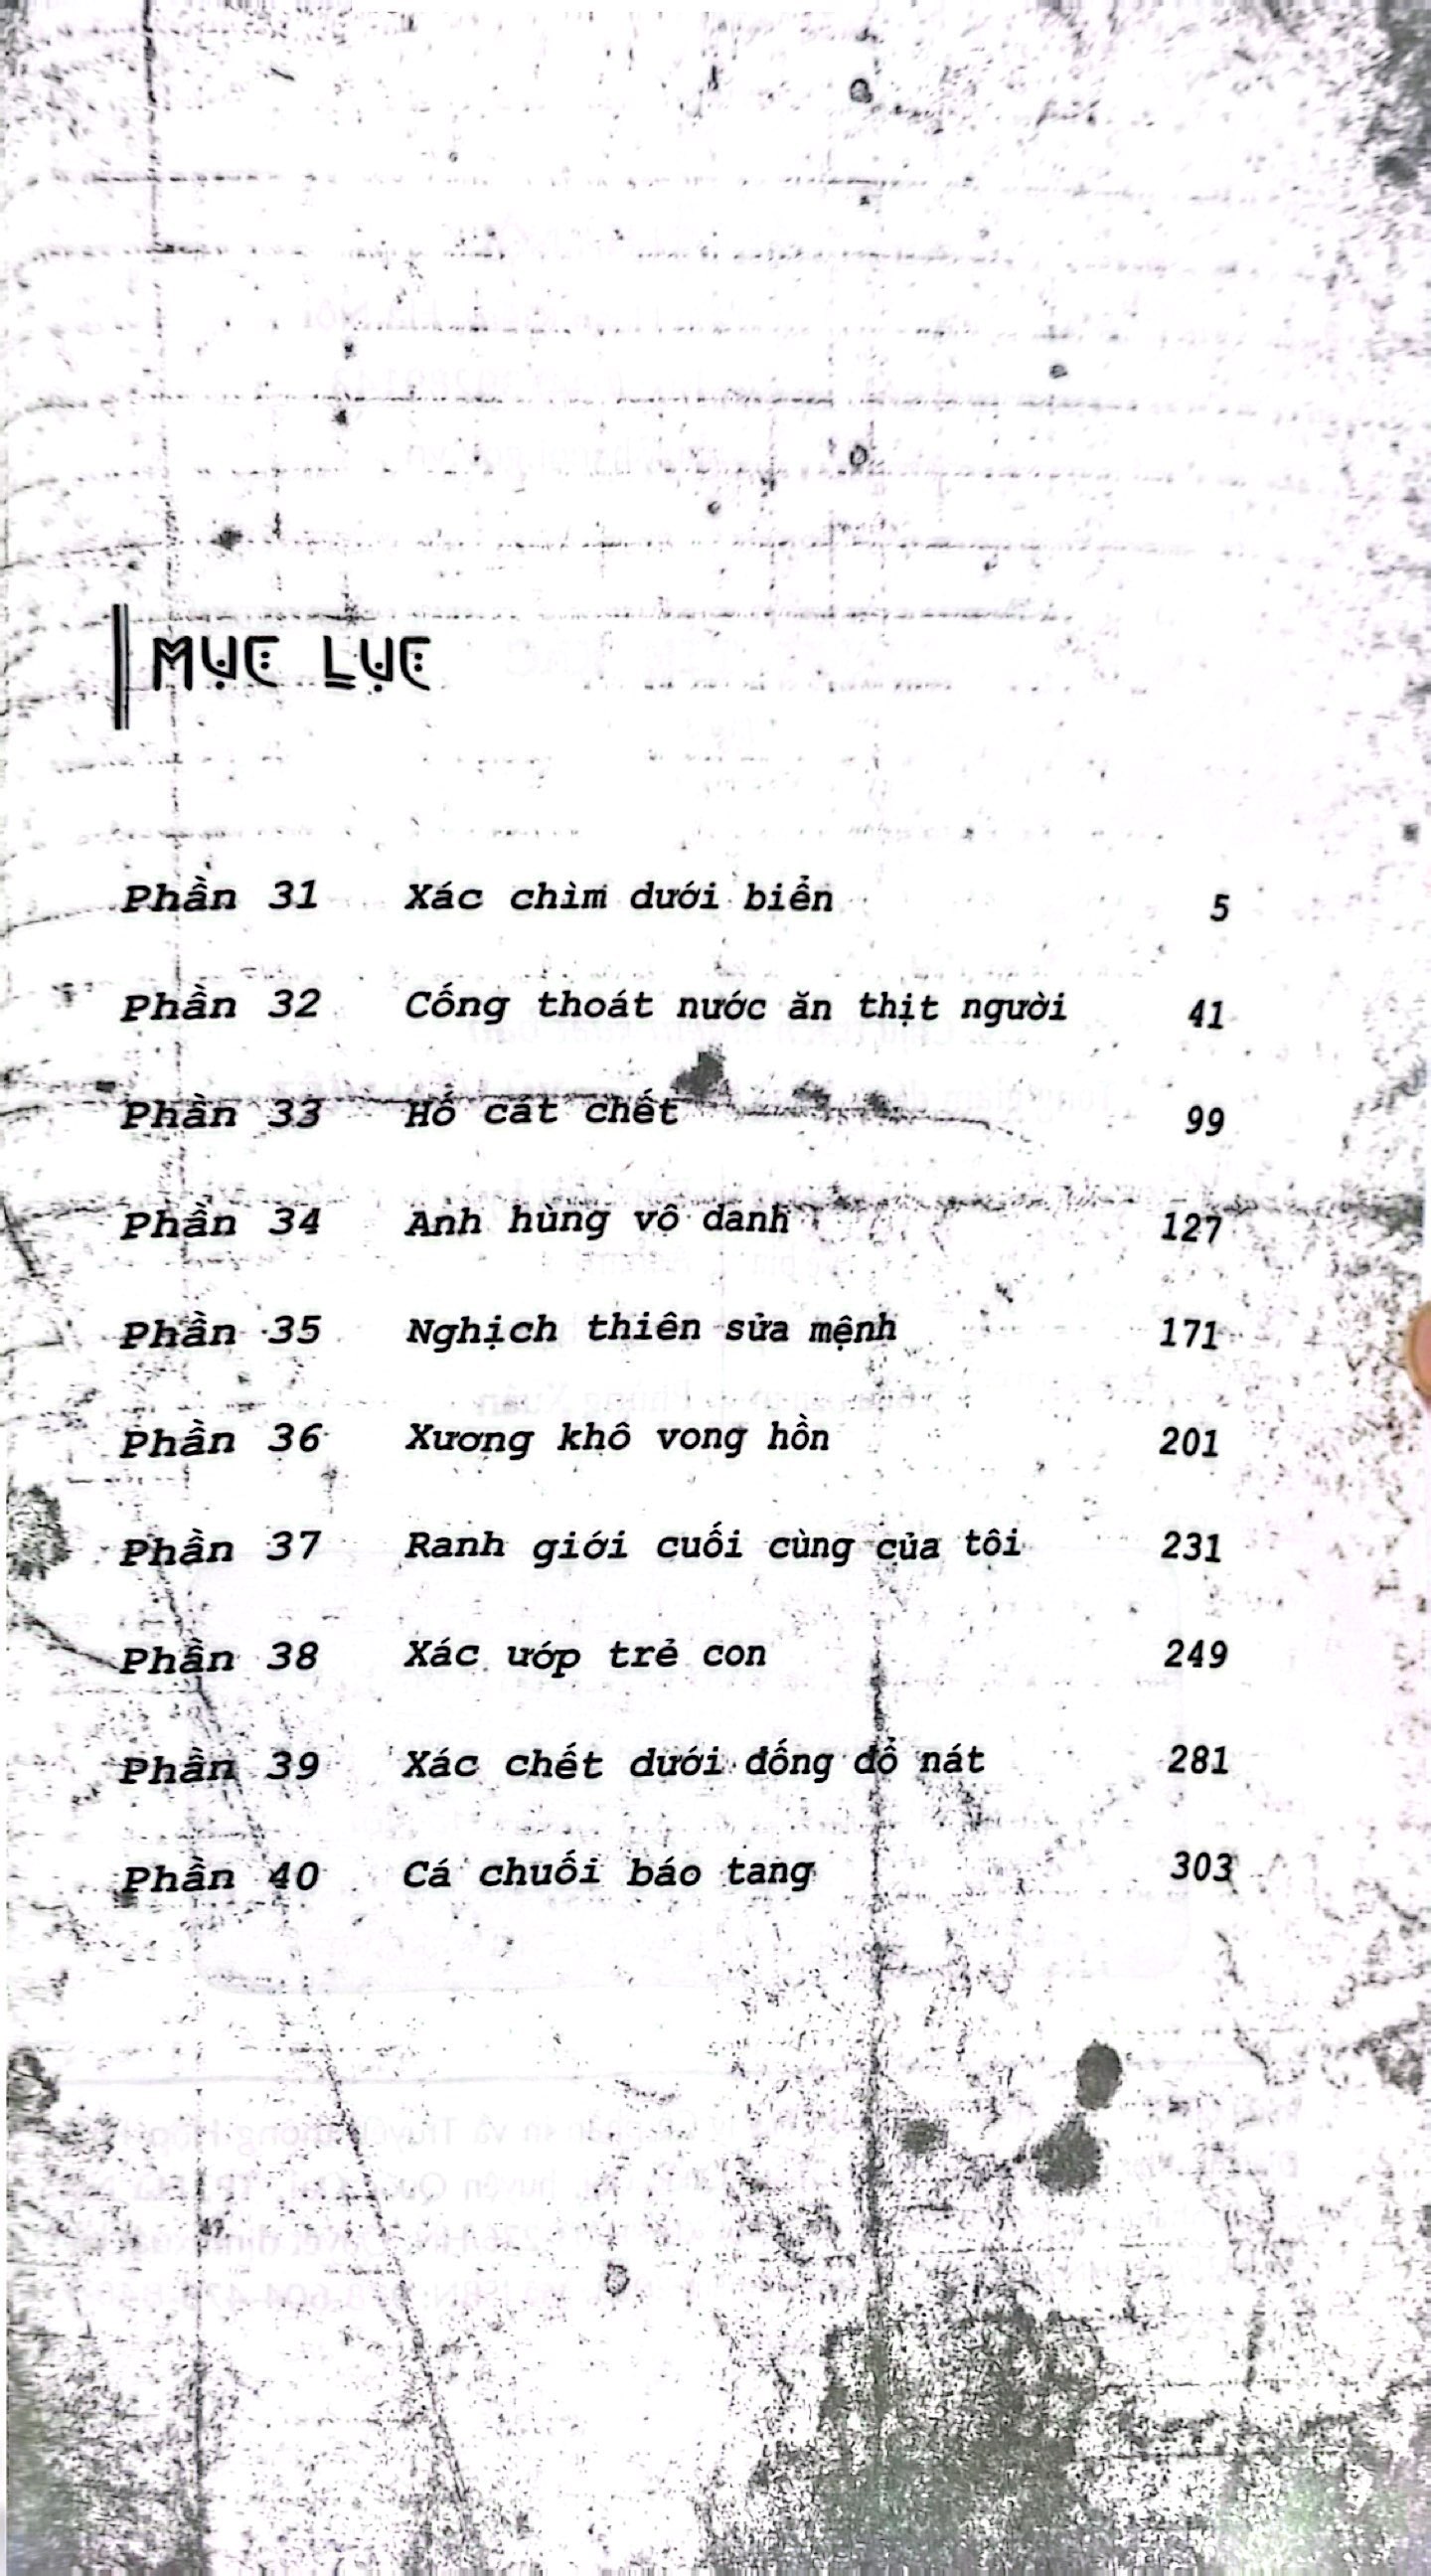 MỤC LỤC
Phần 31 Xác chìm dưới biển 5
Phần 32 Cống thoát nước ăn thịt người 41
Phần 33 Hố cát chết 99
Phần 34 Anh hùng vô danh 127
Phần 35 Nghịch thiên sửa mệnh 171
Phần 36 Xương khô vong hồn 201
Phần 37 Ranh giới cuối cùng của tôi 231
Phần 38 Xác ướp trẻ con 249
Phần 39 Xác chết dưới đống đổ nát 281
Phần 40 Cá chuối báo tang 303